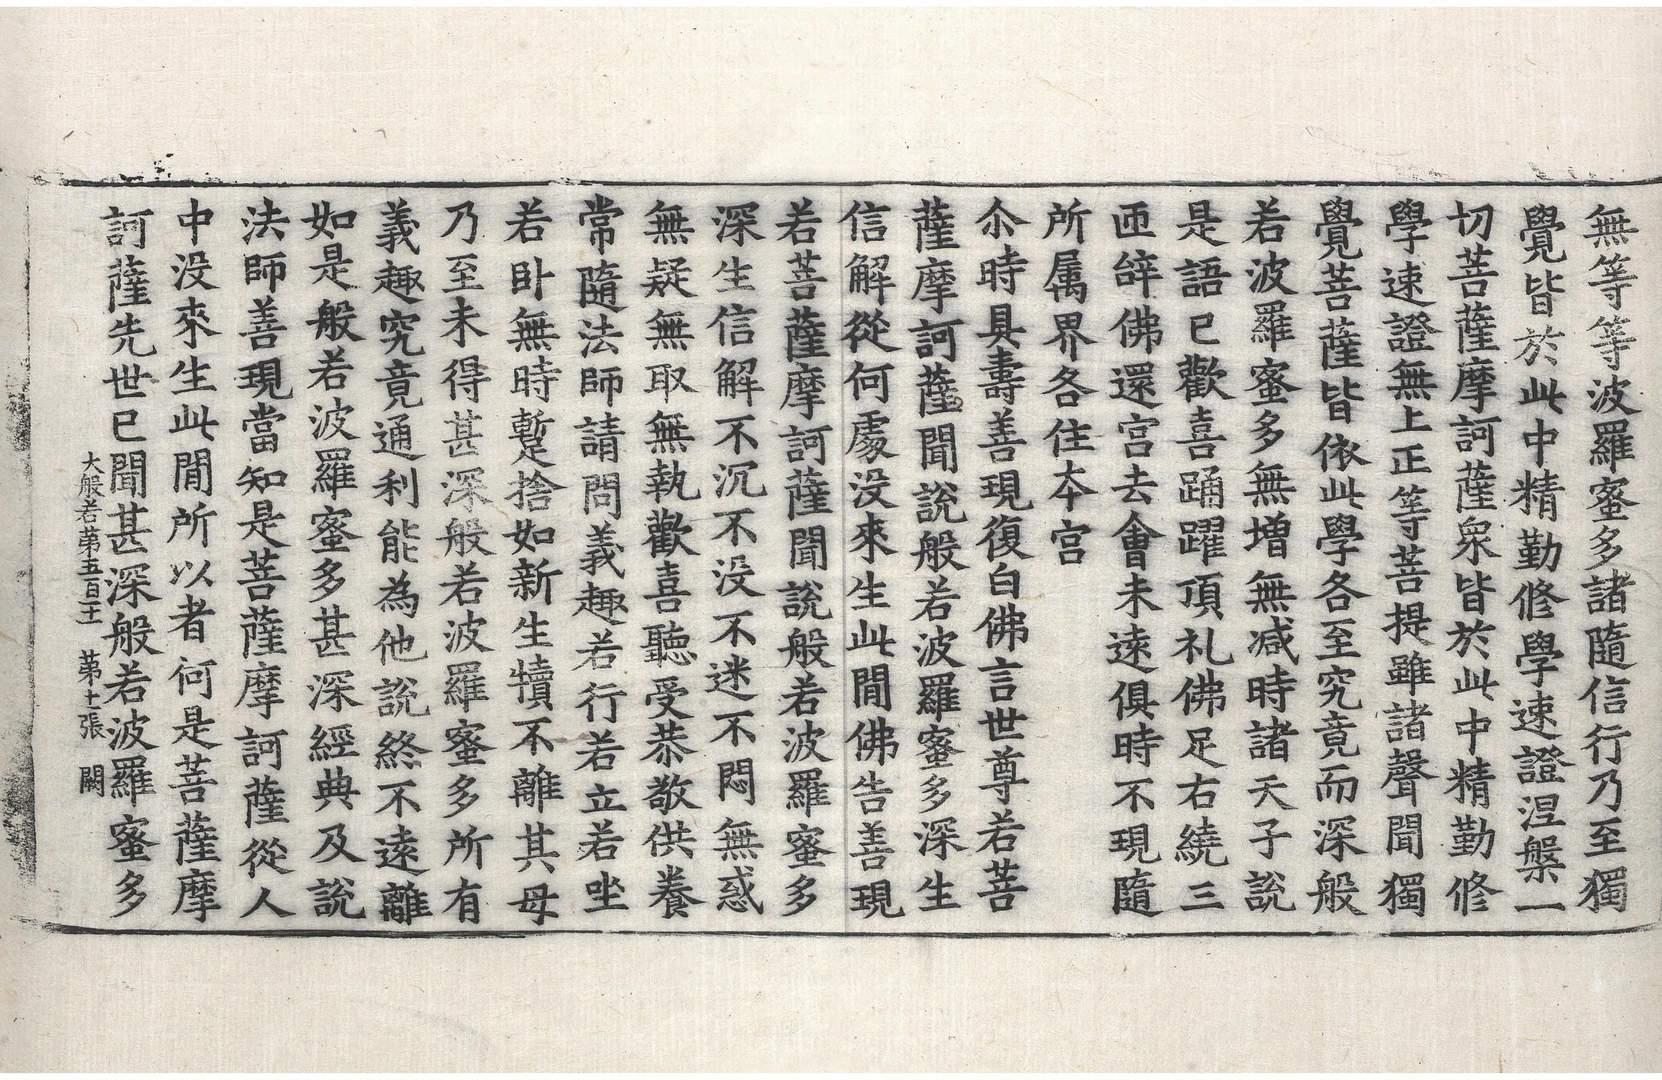 無等等波羅蜜多諸隨信行乃至獨
覺皆於此中精勤修學速證涅槃一
切菩薩摩訶薩衆皆於此中精勤修
學速證無上正等菩提雖諸聲聞獨
覺菩薩皆依此學各至究竟而深般
若波羅蜜多無增無减時諸天子說
是語已歡喜踊躍頂礼佛足右繞三
匝辝佛還宫去會未遠俱時不現隨
所属界各住夲宫
尒時具壽善現復白佛言世尊若菩
薩摩訶薩聞說般若波羅蜜多深生
信解從何處没來生此閒佛告善現
若菩薩摩訶薩聞說般若波羅蜜多
深生信解不沉不没不迷不悶無惑
無疑無取無執歡喜聽受恭敬供養
常隨法師請問義趣若行若立若坐
若卧無時暫捨如新生犢不離其母
乃至未得甚深般若波羅蜜多所有
義趣究竟通利能為他說終不遠離
如是般若波羅蜜多甚深經典及說
法師善現當知是菩薩摩訶薩從人
中没來生此閒所以者何是菩薩摩
訶薩先世已聞甚深般若波羅蜜多
大般若苐五百十一 苐十一張 闕